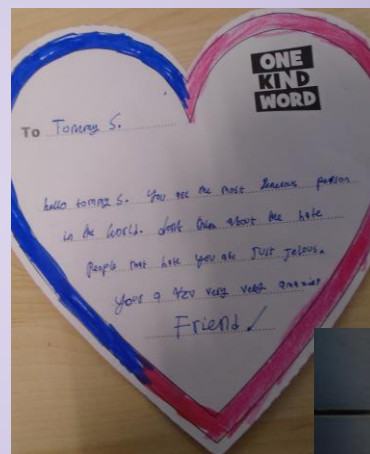 ONE
KIND
WORD
To Tommy S.
hello tommy S. You are the most generous person
in the world. dont think about the hate
People that hate you are Just Jelous.
your a very very very
Friend!